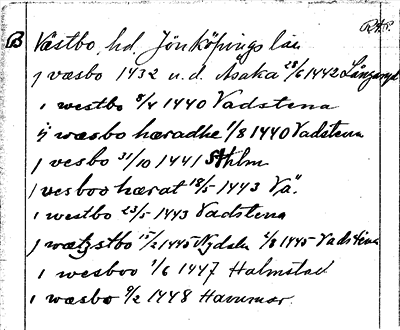 RAP.
B Västbo, hd, Jönköpings län
j væsbo 1432 u.d. Åsaka 28/6 1442 Långaryd
i westbo 8/4 1440 Vadstena
ij wæsbo hæradhe 1/8 1440 Vadstena
j vesbo 31/10 1441 Sthlm
j vesboo hærat 18/5 1443 Vä.
i westbo 23/5 1443 Vadstena
j wætzstbo 15/2 1445 Nydala 4/8 1445 Vadstena
i wesboo 1/6 1447 Halmstad
i wæsbo 9/2 1448 Hammar.